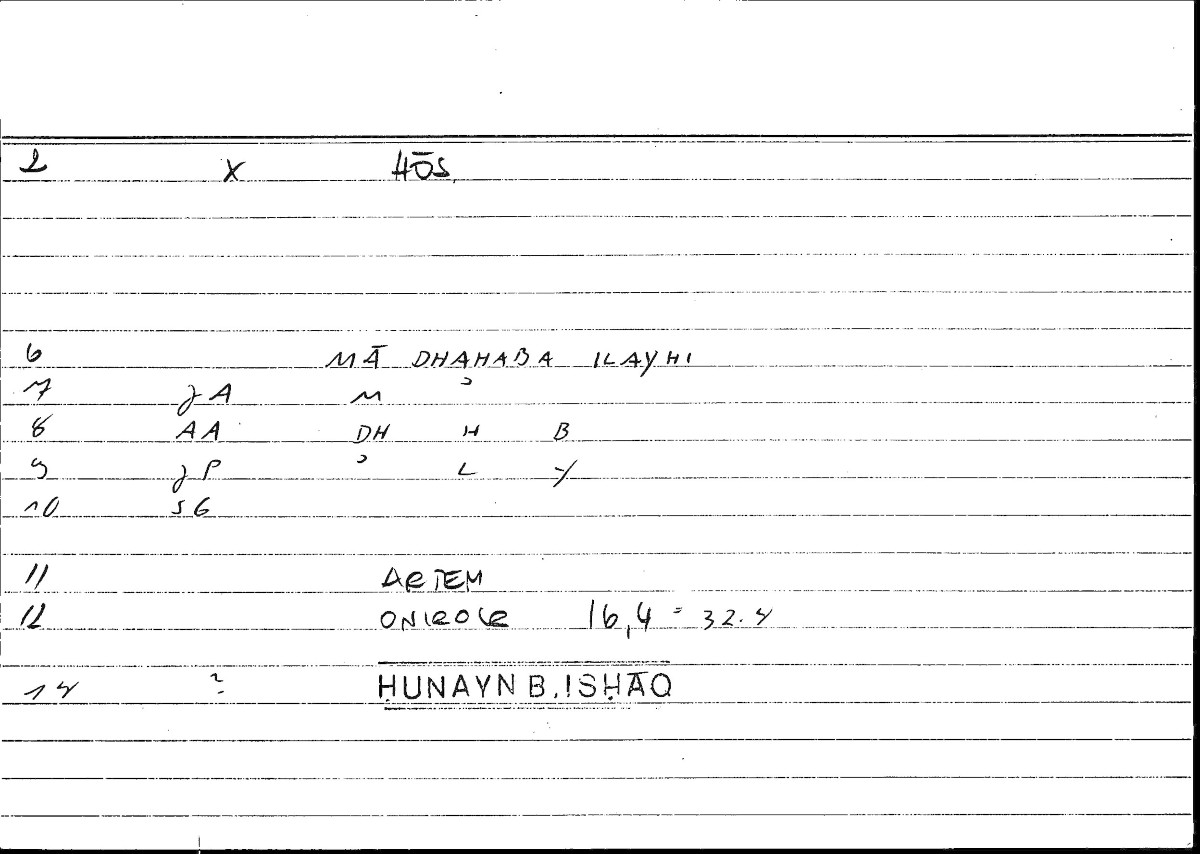 2 X HŌS.
6 MĀ DHAHABA ILAYHI
7 JA M
8 AA DH H B
9 JP ʾ L Y
10 SG
11 ARTEM
12 ONIROCR 16,4 = 32.4
14 ? ḤUNAYN B. ISḤĀQ